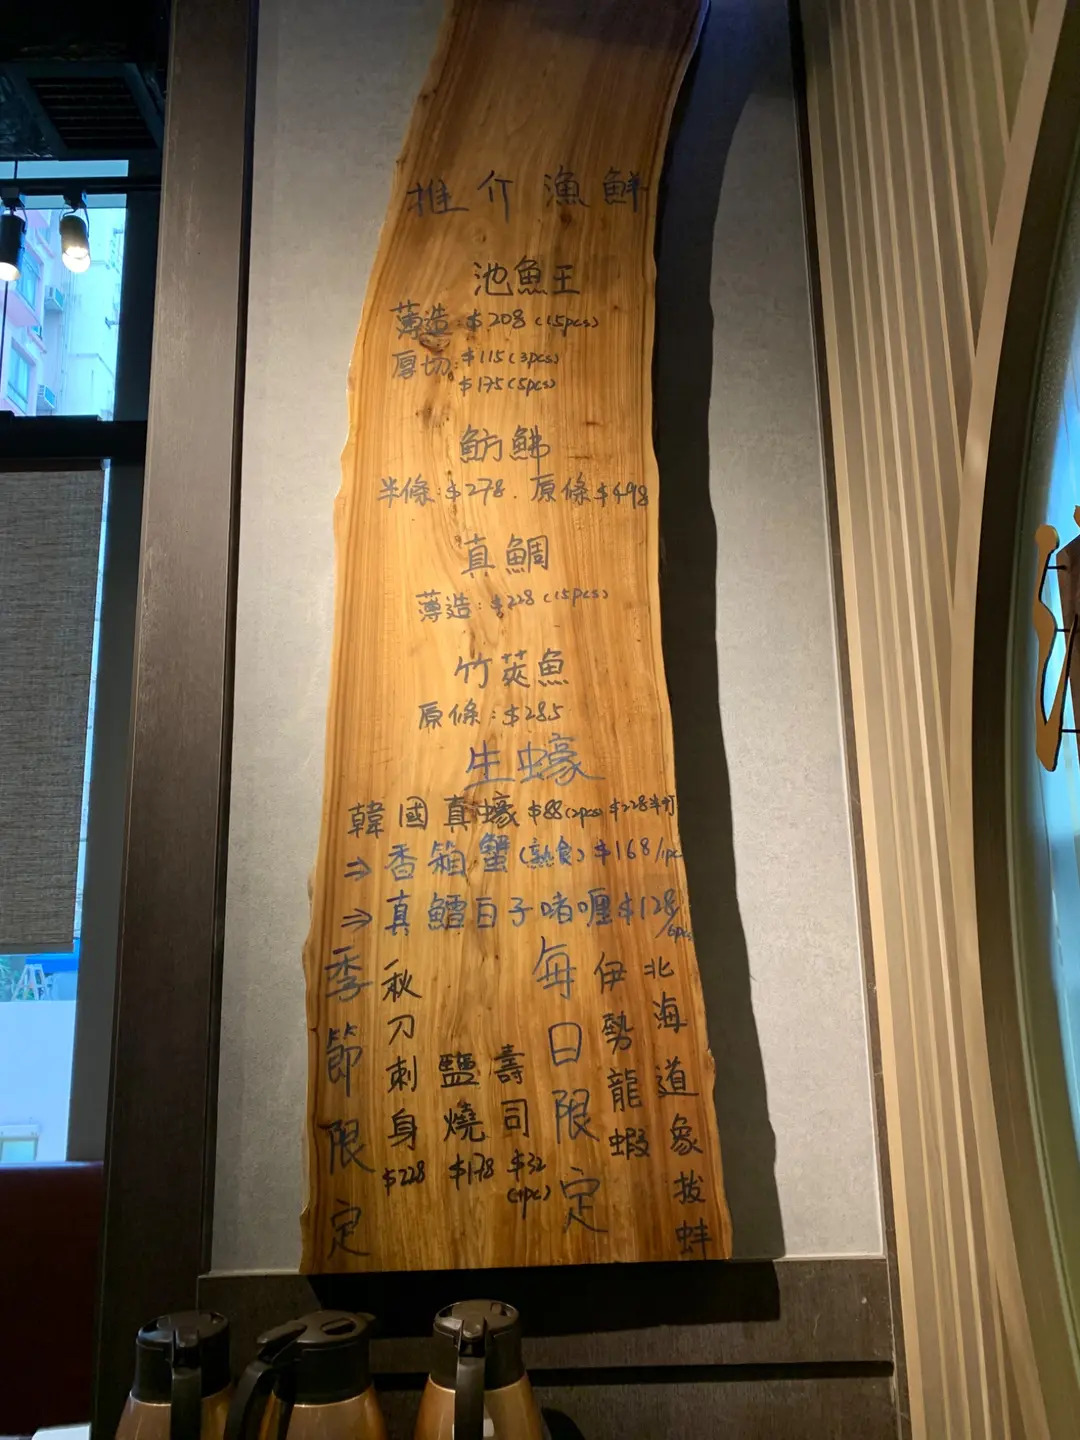 推介漁鮮
池魚王
薄造:$208(15pcs)
厚切:$115(3pcs)
$175(5pcs)
魴鮄
半條:$278. 原條$498
真鯛
薄造:$228(15pcs)
竹莢魚
原條:$285
生蠔
韓國真蠔$88(2pcs)$228半打
⇒香箱蟹(熟食)$168/1pc
⇒真鱈白子啫喱$128/6pcs
季節限定
秋刀刺身$228
鹽燒$178
壽司$32(1pc)
每日限定
伊勢龍蝦
北海道象拔蚌